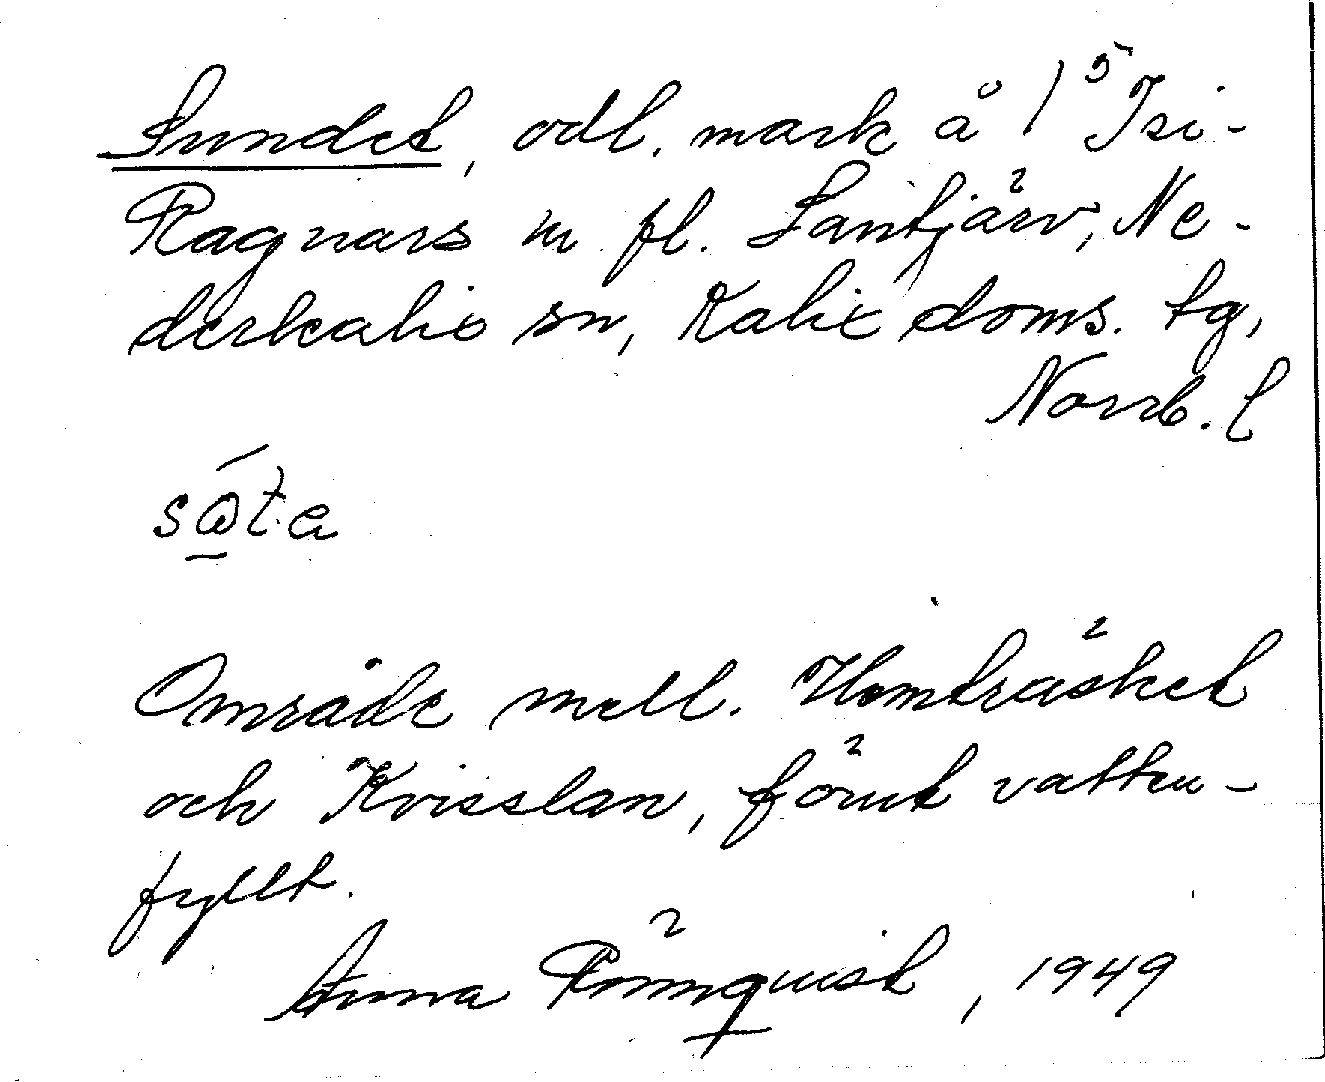 Sundet, odl. mark å 1⁵ Isi-
Ragnars m fl. Santjärv, Ne-
derkalix sn, Kalix doms. tg,
Norrb. l
Område mell. Hemträsket
och Kvisslan, förut vatten-
fyllt.
Anna Rönnquist, 1949